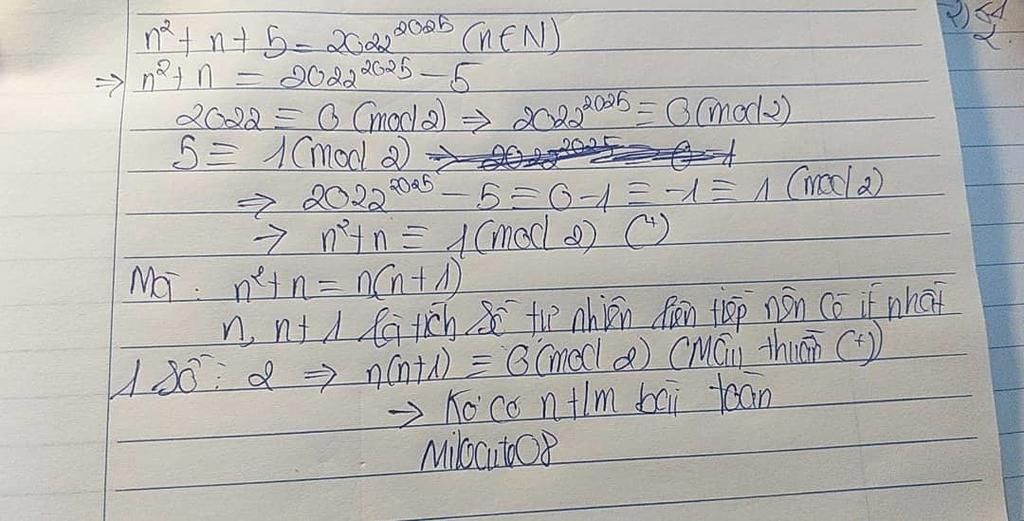 n² + n + 5 = 2022²⁰²⁵ (n ∈ N)
⇒ n² + n = 2022²⁰²⁵ - 5
2022 ≡ 0 (mod 2) ⇒ 2022²⁰²⁵ ≡ 0 (mod 2)
5 ≡ 1 (mod 2)
⇒ 2022²⁰²⁵ - 5 ≡ 0 - 1 ≡ -1 ≡ 1 (mod 2)
→ n² + n ≡ 1 (mod 2) (+)
Mà : n² + n = n(n+1)
n, n+1 là tích số tự nhiên liên tiếp nên có ít nhất
1 số ⋮ 2 ⇒ n(n+1) ≡ 0 (mod 2) (Mâu thuẫn (+))
→ Ko có n t/m bài toán
Milocuto08